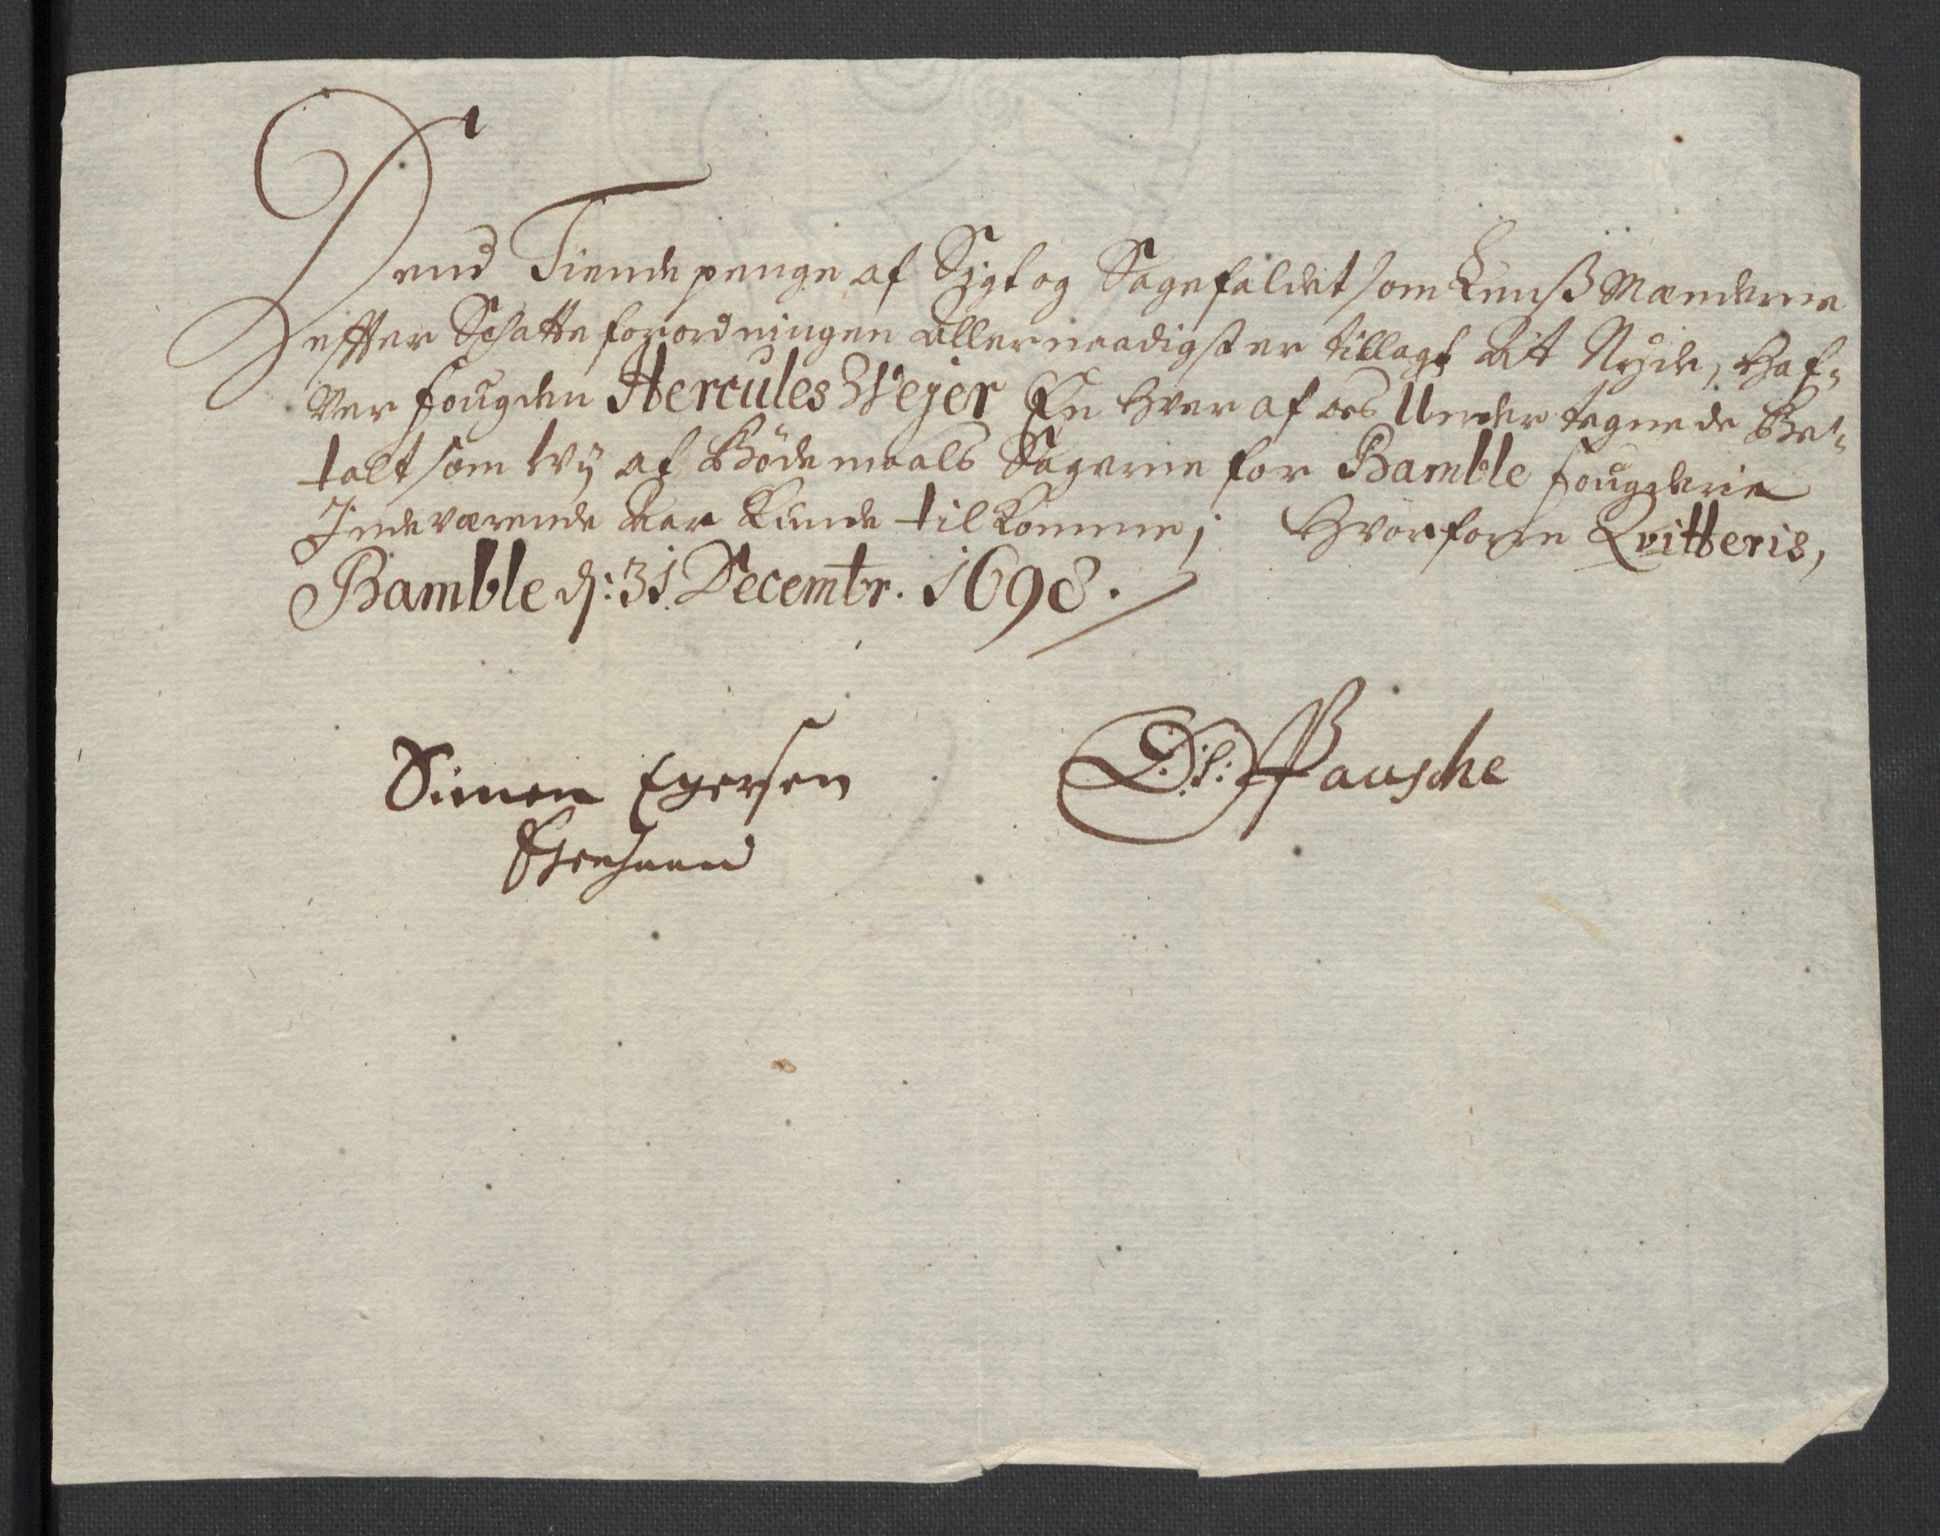 Dend Tiende penge af Sigt og Sagefaldet som Lensß Mænderne
effter Schatte forordningen allernaadigst er tillagt at Nyde, Haf-
ver fougden Hercules Wejer En hver af os Under tegnede Be-
talt som wij af Bøde maals Sagerne for Bamble fougderie
Indeværende Aar kunde tilkomme; Hvorforre Qvitteris,
Bamble d: 31 Decembr. 1698.
Simon Egersen
Egenhaand
Pausche